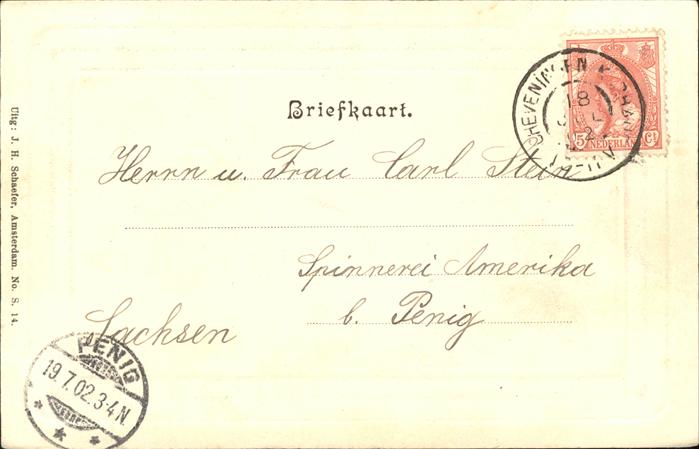 Briefkaart.
Herrn u. Frau Carl Stein
Spinnerei Amerika
b. Penig
Sachsen
Uitg: J. H. Schaefer, Amsterdam. No. S. 14.
SCHEVENINGEN
18
5 Ct
NEDERLAND
PENIG
19.7.02.3-4N.